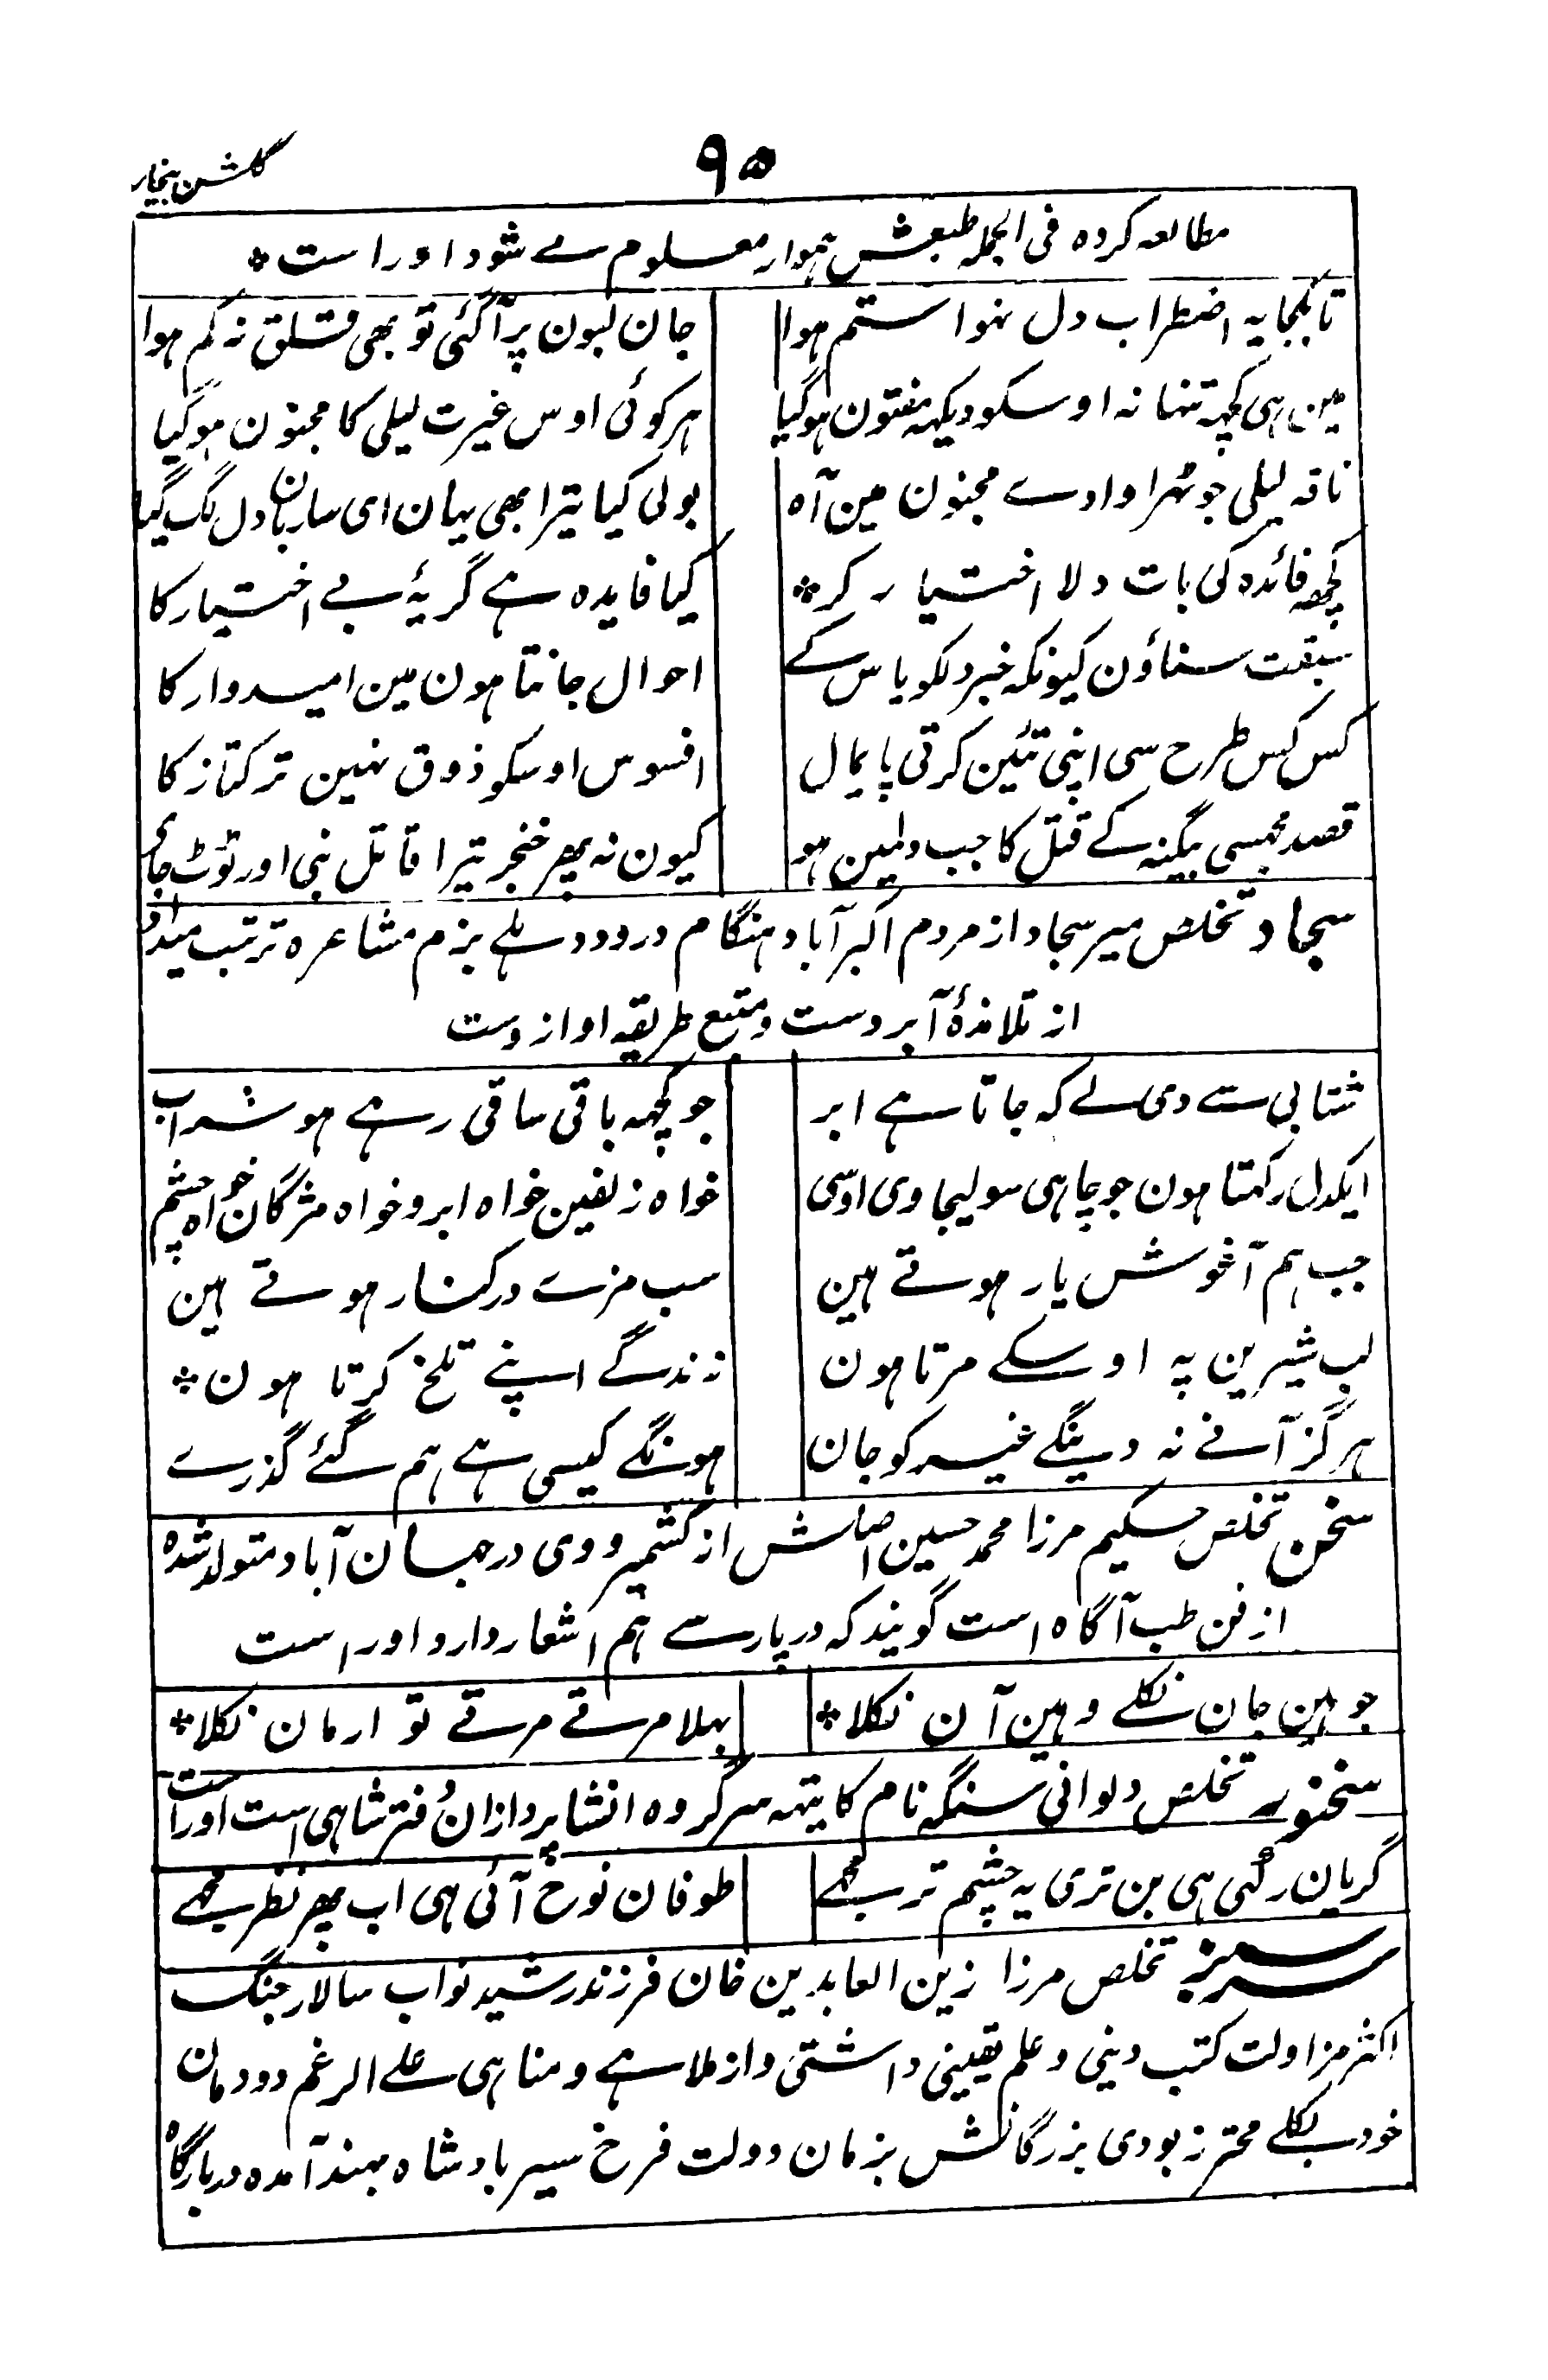 ۹۵
گلشن بیخار
مطالعہ کردہ فی الجملہ طبعش ہموار معلوم مے شود اوراست ٭
تا بکجا یہ اضطراب دل نہوا ستم ہوا
جان لبون پر آگئی تو بھی قلق نہ کم ہوا
مین ہی کچہہ تنہا نہ اوسکو دیکہہ مفتون ہوگیا
ہر کوئی اوس غیرت لیلی کا مجنون ہوگیا
ناقہ لیلی جو ٹہرا وادے مجنون مین آہ
بولی کیا تیرا بھی یہان ای ساربان دل لگ گیا
کچھہ فائدہ کی بات دلا اختیار کر ٭
کیا فایدہ ہے گریۂ بے اختیار کا
سبقت سناؤن کیونکہ خبر دلکو یاس کے
احوال جانتا ہون مین امیدوار کا
کس کس طرح سی اپنی تئین کرتی پایمال
افسوس اوسکو ذوق نہین ترکتاز کا
قصد مجہسی بیگنہ کے قتل کا جب دلمین ہو
کیون نہ پھر خنجر تیرا قاتل بنی اور ٹوٹ جائے
سجاد تخلص میر سجاد از مردم اکبرآباد ہنگام درود دہلے بزم مشاعرہ ترتیب میداد
از تلامذۂ آبروست و متبع طریقہ او ازوست
شتابی ستے دی لے کہ جاتا ہے ابر
جو کچہہ باقی ساقی رہے ہو شراب
ایکدل رکہتا ہون جو چاہی سو لیجاوی اوسی
خواہ زلفین خواہ ابرو خواہ مژگان خواہ چشم
جب ہم آغوش یار ہوتے ہین
سب مزے درکنار ہوتے ہین
لب شیرین پہ اوسکے مرتا ہون
زندگے اپنے تلخ کرتا ہون ٭
ہرگز آنے نہ دینگے غیر کو جان
ہونگے کیسی ہے ہم گئے گذرے
سخن تخلص حکیم مرزا محمد حسین اصلش از کشمیر و وی در جہان آباد متولد شدہ
از فن طب آگاہ است گویند کہ در پارسے ہم اشعار دارد اوراست
جوہین جان نکلے وہین آن نکلا ٭
بہلا مرتے مرتے تو ارمان نکلا ٭
سخنور تخلص دلوانی سنگہ نام کایتہہ سرگروہ انشا پردازان دفتر شاہی است اوراست
گریان رکہی ہی بن تری یہ چشم تر مجھے
طوفان نوح آئی ہی اب پھر نظر مجھے
سرسبز تخلص مرزا زین العابدین خان فرزند رشید نواب سالار جنگ
اکثر مزاولت کتب دینی و علم یقینی داشتی و از ملاہے و مناہی علے الرغم دودمان
خود بکلے محترز بودی بزرگانش بزمان دولت فرخ سیر بادشاہ بہند آمدہ دربارگاہ